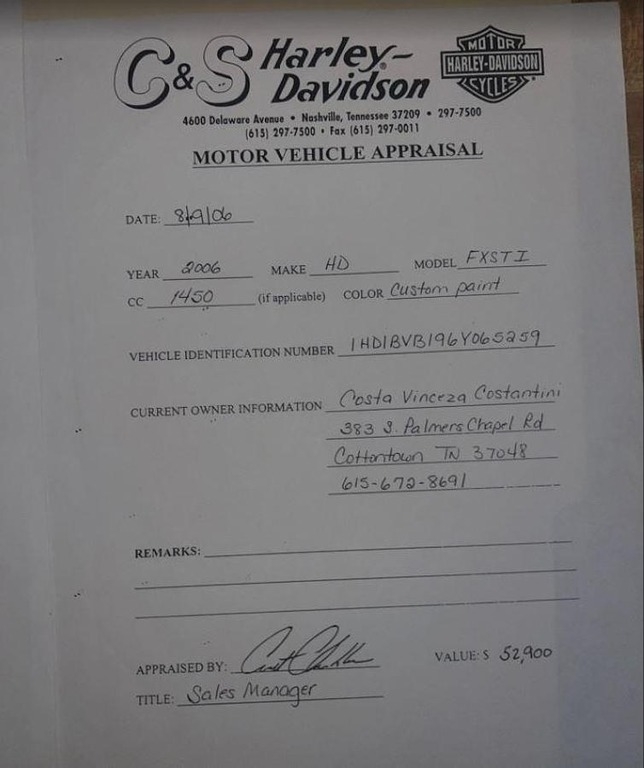 C&S Harley-Davidson
MOTOR
HARLEY-DAVIDSON
CYCLES
4600 Delaware Avenue • Nashville, Tennessee 37209 • 297-7500
(615) 297-7500 • Fax (615) 297-0011
MOTOR VEHICLE APPRAISAL
DATE: 8/9/06
YEAR 2006 MAKE HD MODEL FXSTI
CC 1450 (if applicable) COLOR Custom paint
VEHICLE IDENTIFICATION NUMBER 1HD1BVB196Y065259
CURRENT OWNER INFORMATION Costa Vinceza Costantini
383 S. Palmers Chapel Rd
Cottontown TN 37048
615-672-8691
REMARKS:
APPRAISED BY: VALUE: $ 52,900
TITLE: Sales Manager